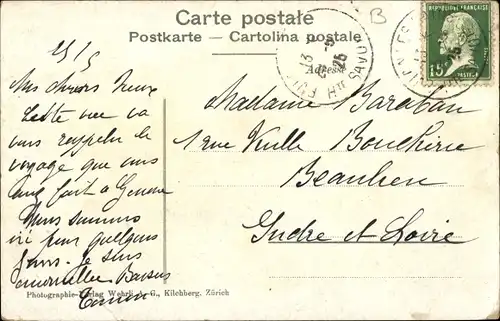 Carte postale
Postkarte - Cartolina postale
B
REPUBLIQUE FRANÇAISE
15c
PASTEUR
13
25
Adresse
Mes chers
Cette vue va
vous rappeler le
voyage que vous
avez fait a Geneve
Nous sommes
ici pour quelques
jours. Je suis
Baisers
Madame Baraban
1 rue Boucherie
Beaulieu
Indre et Loire
Photographie-Verlag Wehrli A. G., Kilchberg. Zürich